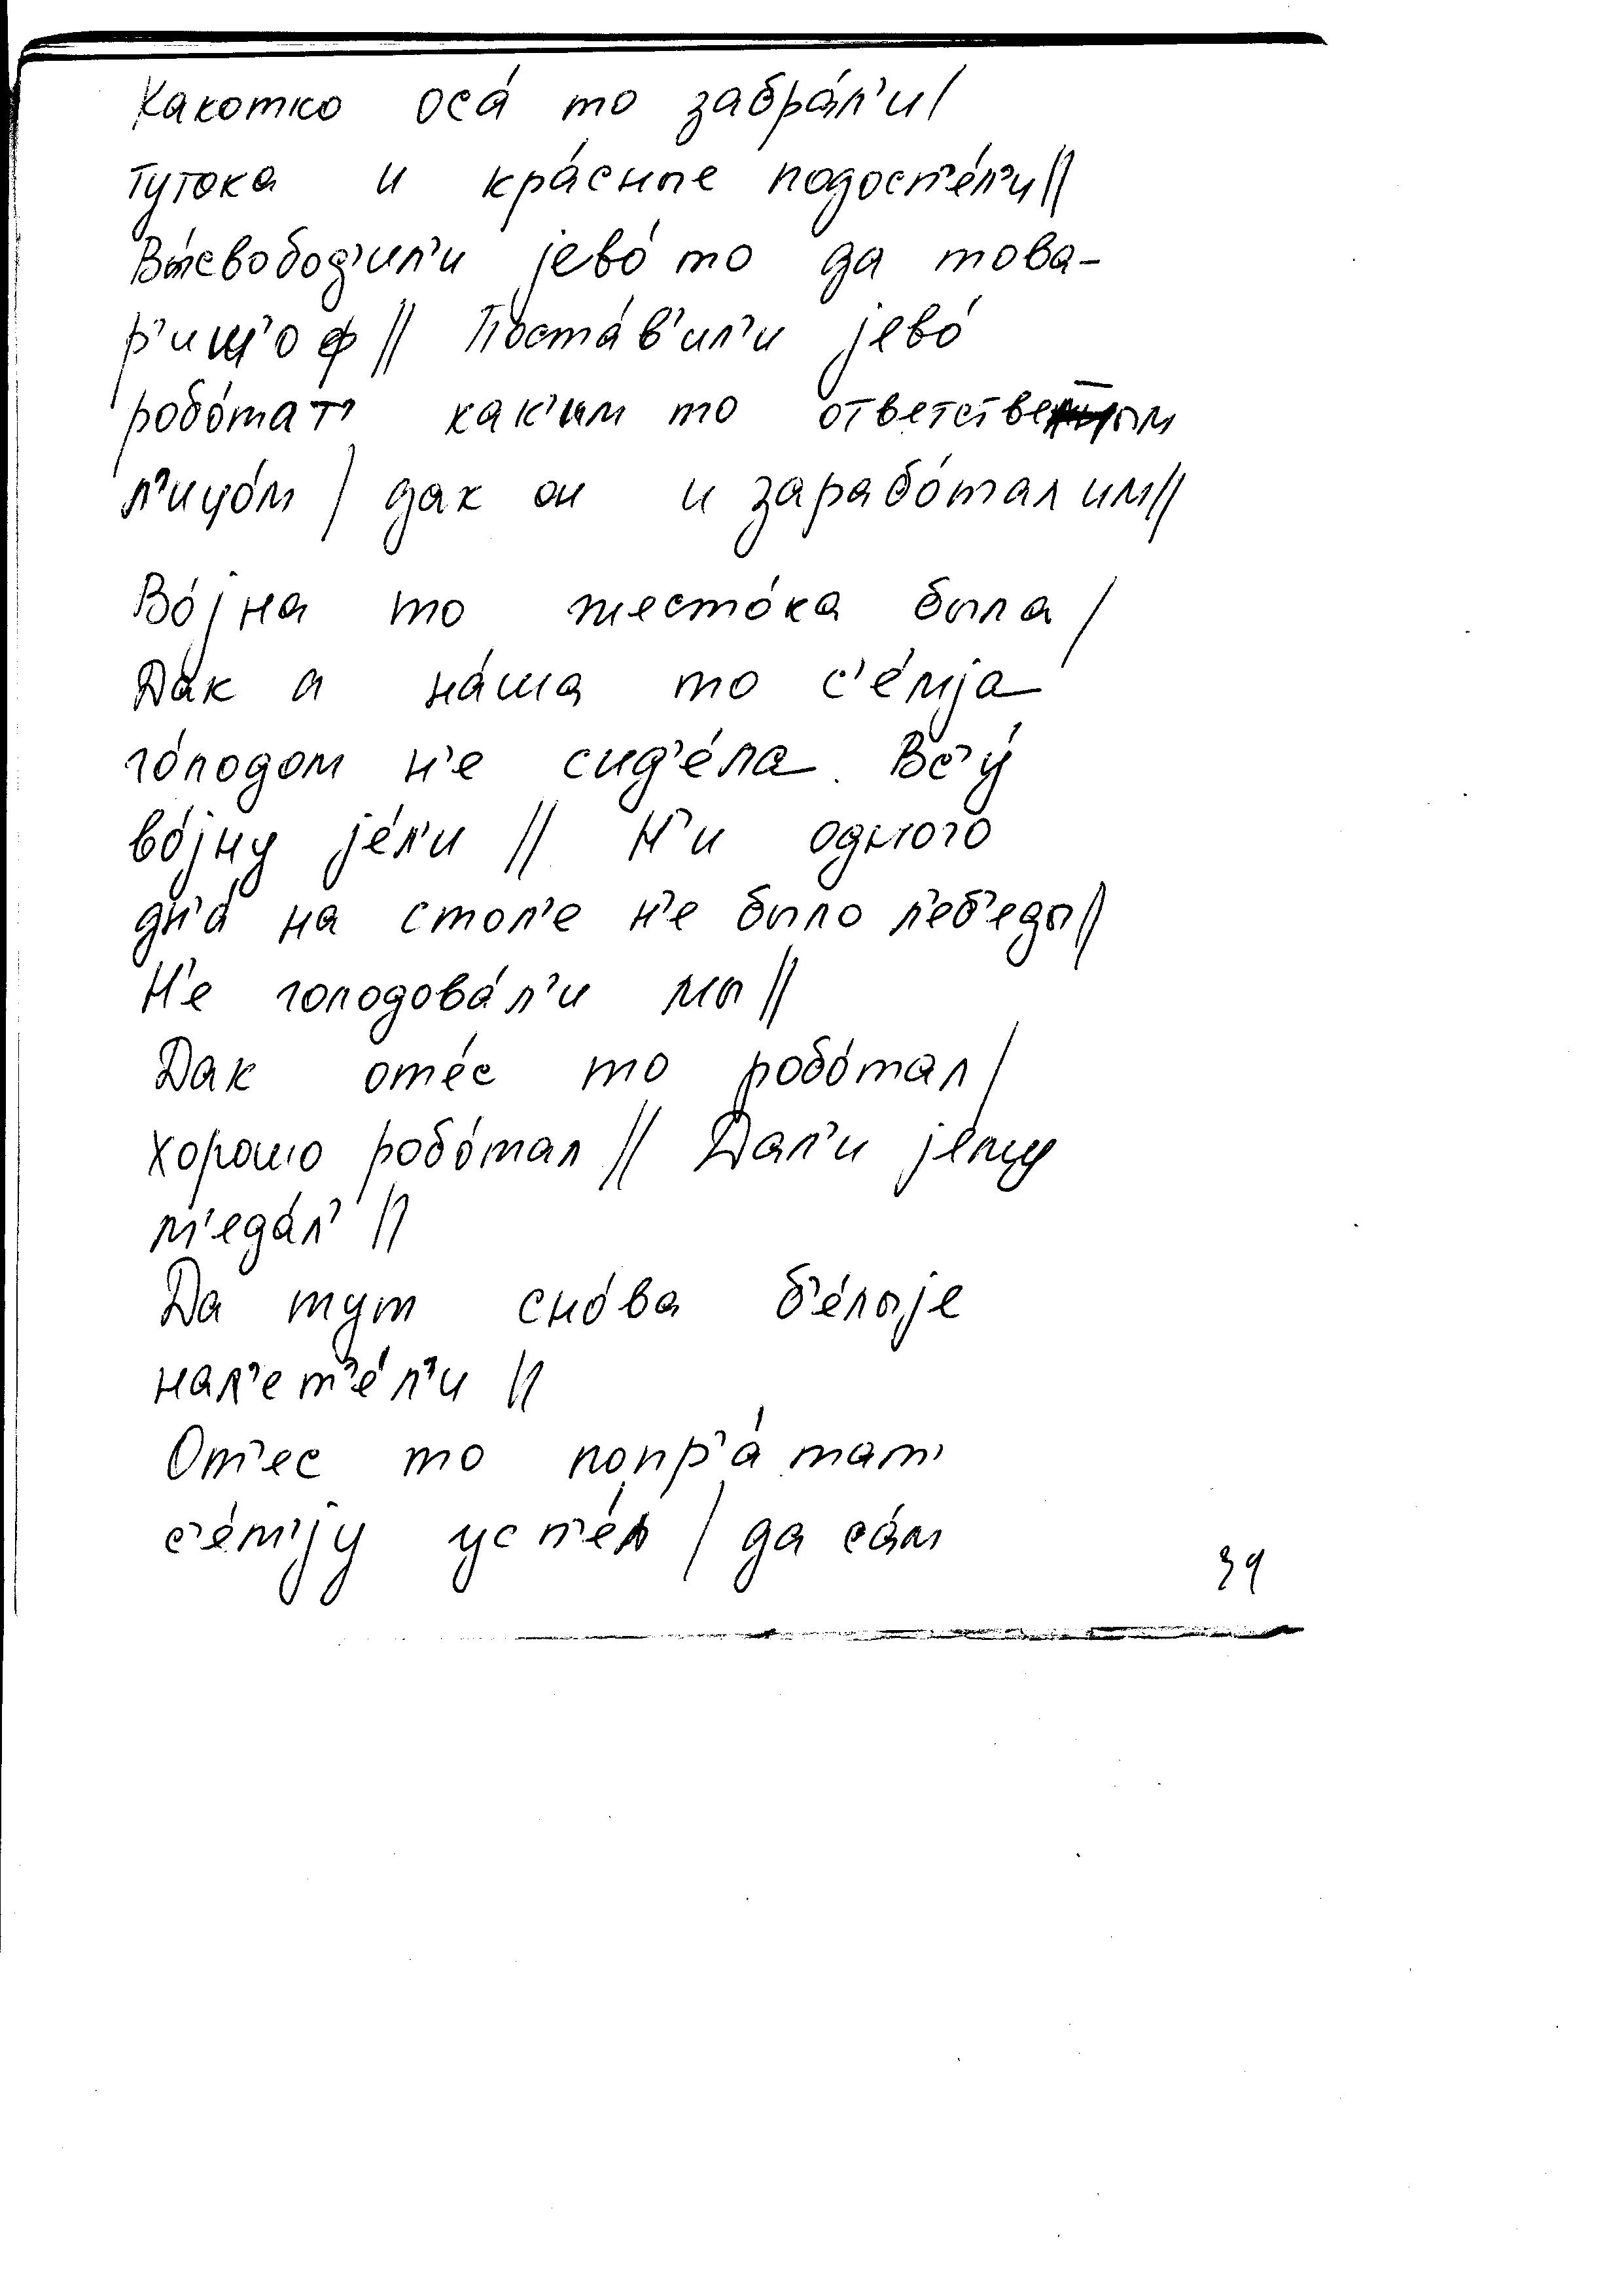 Какотко оса́ то забра́л'и/
тутока и кра́сные подосп'е́л'и//
Вы́свобод'ил'и jево́ то да това-
р'ищ'оф// Поста́в'ил'и jево́
робо́тат' как'им то ответственым
л'ицо́м / дак он и зарабо́тал им//
Во́jна то жесто́ка была/
Дак а на́ша то с'е́мjа
го́лодом н'е сид'е́ла. Вс'у́
во́jну jе́л'и // Н'и одного
дн'а́ на стол'е н'е было л'еб'еды//
Н'е голодова́л'и мы//
Дак оте́с то робо́тал/
хорошо робо́тал// Дал'и jему
м'еда́л' //
Да тут сно́ва б'е́лыjе
нал'ет'е́л'и //
От'ес то попр'а́тат'
с'е́м'jу усп'е́л / да са́м